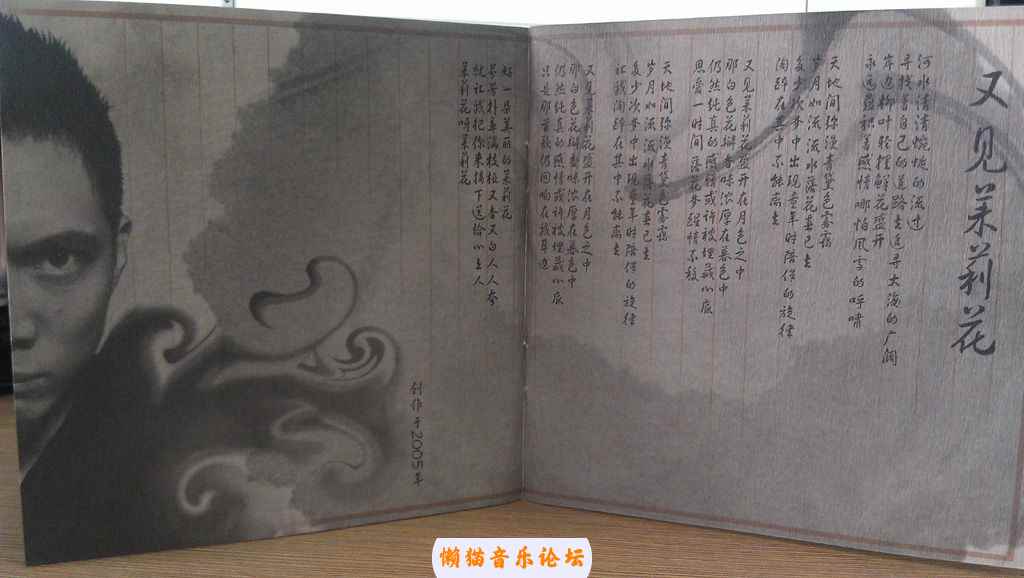 又见茉莉花
河水清清蜿蜒的流过
寻找着自己的道路去追寻大海的广阔
岸边柳叶轻摆鲜花盛开
永远蕴积着感情哪怕风雪的呼啸
天地间弥漫青黛色雾霭
岁月如流流水落花春已去
多少次梦中出现童年时陪伴的旋律
陶醉在其中不能离去
又见茉莉花盛开在月色之中
那白色花瓣香味浓厚在暮色中
仍然纯真的感情或许被埋藏心底
思念一时间落花梦醒情不救
天地间弥漫青黛色雾霭
岁月如流流水落花春已去
多少次梦中出现童年时陪伴的旋律
让我陶醉在其中不能离去
又见茉莉花盛开在月色之中
那白色花瓣香味浓厚在暮色中
仍然纯真的感情或许被埋藏心底
只是那首歌仍回响在我耳边
好一朵美丽的茉莉花
芬芳美丽满枝桠又香又白人人夸
让我来把你摘下送给心上人
茉莉花呀茉莉花
创作于2005年
懒猫音乐论坛